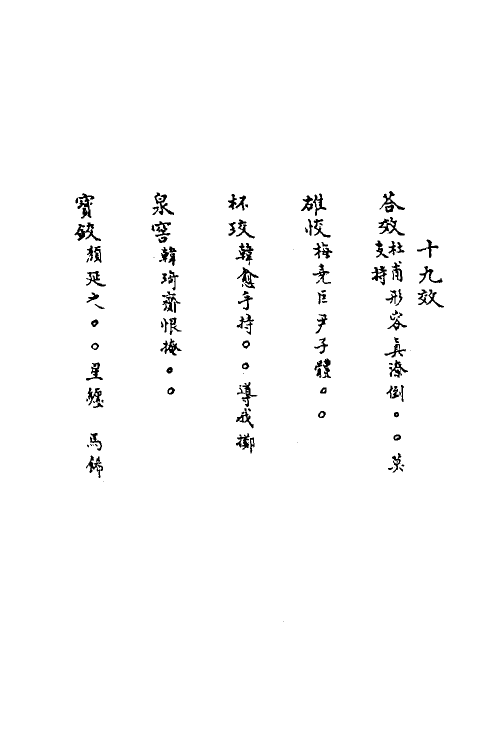 十九效
荅效杜甫形容真潦倒。。莫支持
雄恔梅堯臣尹子體。。
杯珓韓愈手持。。導我擲
泉窖韓琦齎恨掩。。
寶鉸顏延之。。星纏 馬飾